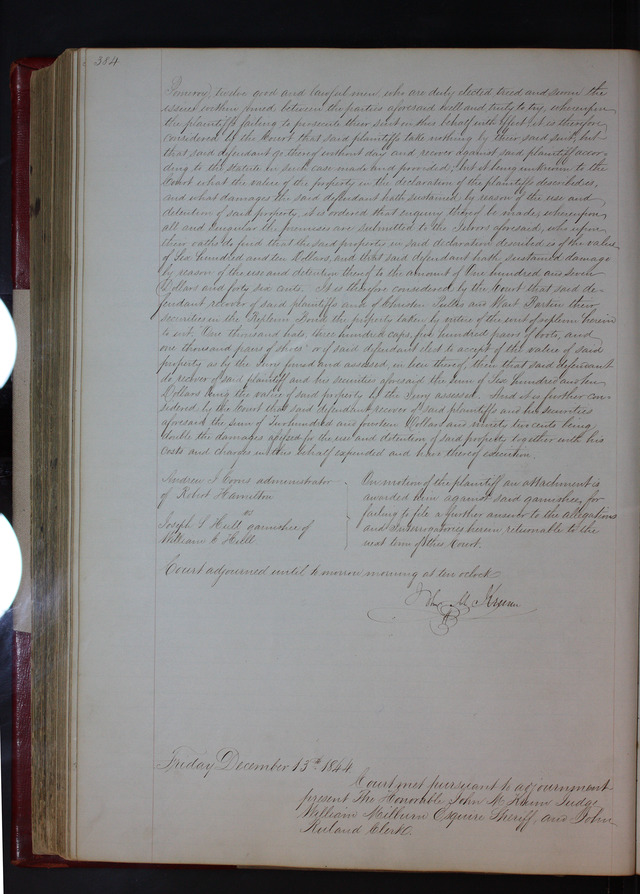 384
twelve good and lawful men who are duly elected tried and sworn the
issues within joined between the parties aforesaid well and truly to try, whereupon
the plaintiffs failing to prosecute their suit in this behalf with effect, it is therefore
considered by the Court that said plaintiffs take nothing by their said suit, but
that said defendant go thereof without day and recover against said plaintiff accor-
ding to the statute in such case made and provided, but it being unknown to the
Court what the value of the property in the declaration of the plaintiffs described is,
and what damages the said defendant hath sustained by reason of the use and
detention of said property, it is ordered that enquiry thereof be made, whereupon
all and singular the premises are submitted to the Jurors aforesaid, who upon
their oaths do find that the said property in said declaration described is of the value
of Six hundred and ten Dollars, and that said defendant hath sustained damage
by reason of the use and detention thereof to the amount of One hundred and seven
Dollars and forty six cents. It is therefore considered by the Court that said de-
fendant recover of said plaintiffs and of and their
securities in the Replevin Bond the property taken by virtue of the writ of replevin herein
to wit: One thousand hats, three hundred caps, five hundred pairs of boots, and
one thousand pairs of shoes or if said defendant elect to accept of the value of said
property as by the Jury found and assessed, in lieu thereof, then that said defendant
do recover of said plaintiff and his securities aforesaid the sum of Six hundred and ten
Dollars being the value of said property by the Jury assessed. And it is further con-
sidered by the Court that said defendant recover of said plaintiffs and his securities
aforesaid the sum of Two hundred and fourteen Dollars and ninety two cents being
double the damages assessed for the use and detention of said property together with his
costs and charges in this behalf expended and have thereof execution.
Andrew J administrator
of Robert Hamilton
vs
Joseph S Hull garnishee of
William E Hull
On motion of the plaintiff an attachment is
awarded him against said garnishee, for
failing to file a further answer to the allegations
and Interrogatories herein returnable to the
next term of this Court.
Court adjourned until tomorrow morning at ten o'clock
John M. Krum
Friday December 13th 1844
Court met pursuant to adjournment
present The Honorable John M Krum Judge
William Milburn Esquire Sheriff, and John
Ruland Clerk.